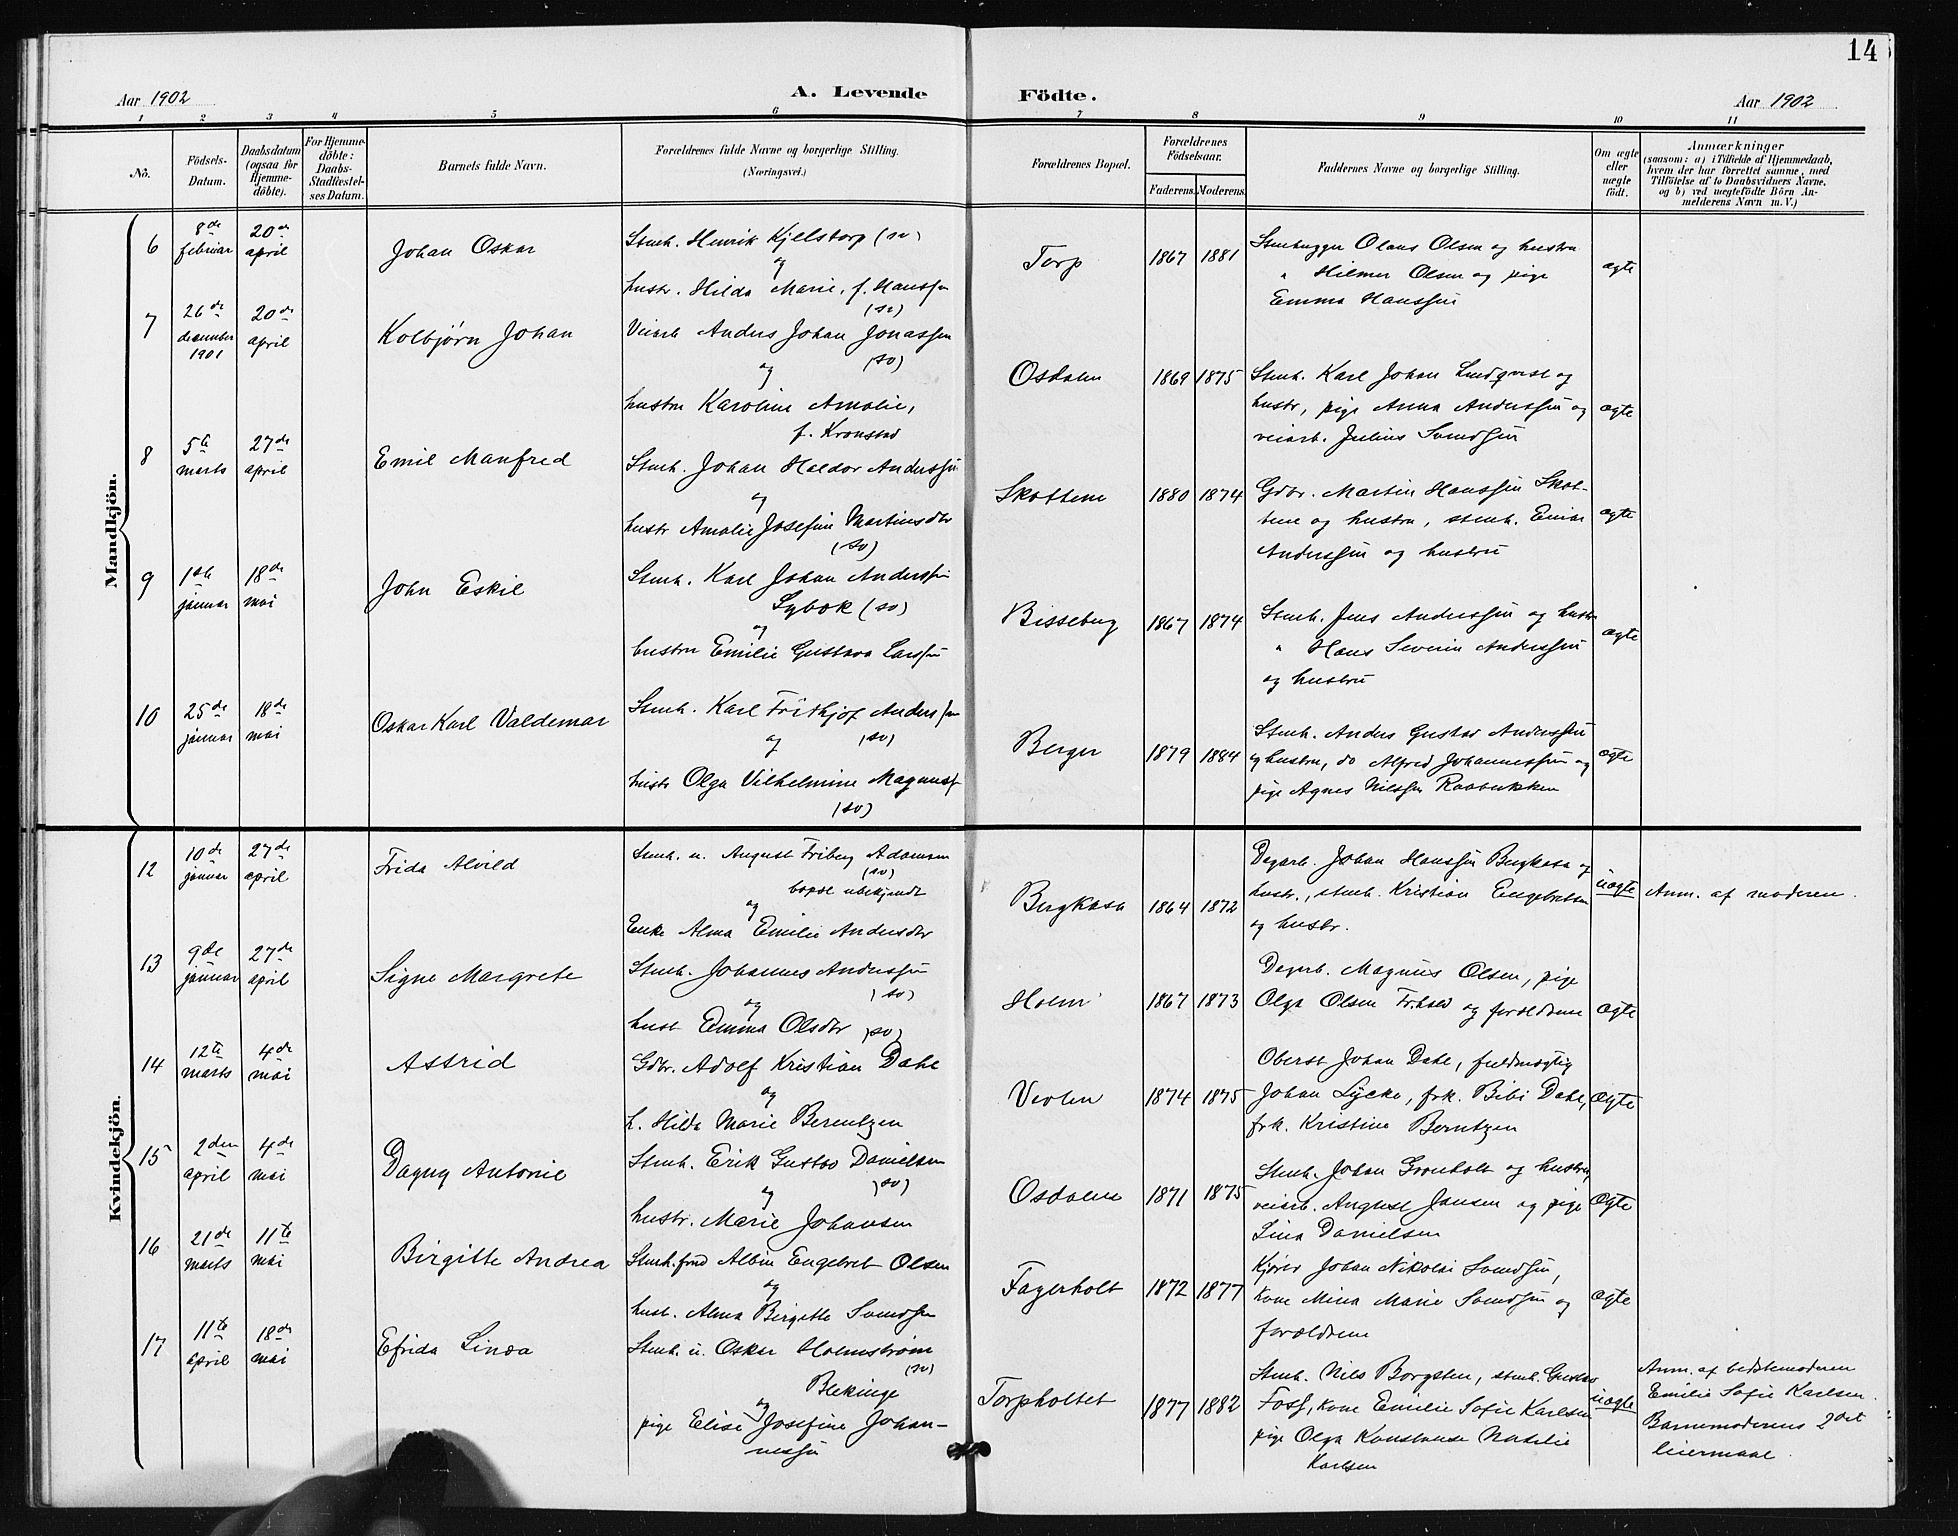 14
Aar 1902 A. Levende Födte. Aar 1902
1 2 3 4 5 6 7 8 9 10 11
No.
Födsels-
Datum.
Daabsdatum
(ogsaa for
Hjemme-
döbte).
For Hjemme-
döbte:
Daabs-
Stadfæstel-
ses Datum.
Barnets fulde Navn.
Forældrenes fulde Navne og borgerlige Stilling.
(Næringsvei.)
Forældrenes Bopæl.
Forældrenes
Födselsaar.
Faderens. Moderens.
Faddernes Navne og borgerlige Stilling.
Om ægte
eller
uægte
födt.
Anmærkninger
(saasom: a) i Tilfælde af Hjemmedaab,
hvem der har forrettet samme, med
Tilföielse af to Daabsvidners Navne,
og b) ved uægtefödte Börn An-
melderens Navn m. V.)
Mandkjön.
6
8de
februar
20de
april
Johan Oskar
Stenh. Henrik Kjellstorp (sv)
og
hustr. Hilda Marie, f. Hanssen
(sv)
Torp
1867 1881
Stenhugger Olaus Olsen og hustru
" Hilmer Olsen og pige
Emma Hanssen
ægte
7
26de
december
1901
20de
april
Kolbjørn Johan
Veiarb Anders Johan Jonassen
(sv)
og
hustru Karoline Amalie,
f. Kronstad
Osdalen
1869 1875
Stenh. Karl Johan Lindqvist og
hustr, pige Anna Anderssen og
veiarb. Julius Svendsen
ægte
8
5te
marts
27de
april
Emil Manfred
Stenh. Johan Haldor Anderssen
og
hustr Amalie Josefine Martinsdtr
(sv)
Skottene
1880 1874
Gdbr. Martin Hanssen Skot-
tene og hustru, stenh. Einar
Anderssen og hustru
ægte
9
1ste
januar
18de
mai
John Eskil
Stenh. Karl Johan Anderssen
Sybok (sv)
og
hustru Emilie Gustava Larssen
Bisseberg
1867 1874
Stenh. Jens Anderssen og hustru
" Hans Severin Anderssen
og hustru
ægte
10
25de
januar
18de
mai
Oskar Karl Valdemar
Stenh. Karl Frithjof Anderssen
og (sv)
hustr Olga Vilhelmine Magnuss
(sv)
Berger
1879 1884
Stenh. Anders Gustav Anderssen
og hustru, do Alfred Johannessen og
pige Agnes Nilssen Raabukken
ægte
Kvindekjön.
12
10de
januar
27de
april
Frida Alvild
Stenh. u. August Friberg Adamsen
(sv)
bopæl ubekjendt
og
Enke Alma Emilie Andersdtr
Bergkasa
1864 1872
Dagarb. Johan Hanssen Bergkasa og
hustr., stenh. Kristian Engebretsen
og hustr.
uægte
Anm. af moderen.
13
9de
januar
27de
april
Signe Margrete
Stenh. Johannes Anderssen
(sv)
og
hust Emma Olsdtr (sv)
Holm
1867 1873
Dagarb. Magnus Olsen, pige
Olga Olsen og forældrene
ægte
14
12te
marts
4de
mai
Astrid
Gdbr. Adolf Kristian Dahl
og
h. Hilda Marie Berentzen
Veolen
1874 1875
Oberst Johan Dahl, fuldmægtig
Johan Lycke, frk. Bibi Dahl,
frk. Kristine Berntzen
Ægte
15
2den
april
4de
mai
Dagny Antonie
Stenh. Erik Gustav Danielsen
(sv)
og
hustr. Marie Johansen
Osdalen
1871 1875
Stenh. Johan Gronholt og hustru,
veiarb. August Jansen og pige
Lina Danielsen
Ægte
16
21de
marts
11te
mai
Birgitte Andrea
Stenh.fmd Albin Engebret Olsen
og
hust. Alma Birgitte Svendsen
Fagerholt
1872 1877
Kjører Johan Nikolai Svendsen,
Kone Mina Marie Svendsen og
forældrene
ægte
17
11te
april
18de
mai
Efrida Linda
Stenh. u. Oskar Holmstrøm
(sv)
Blekinge
og
pige Elise Josefine Johan-
nessen
Torpholtet
1877 1882
Stenh. Nils Borgsten, stenh. Gustav
Foss, kone Emilie Sofie Karlsen
pige Olga Konstanse Natalie
Karlsen
uægte
Anm. af bedstemoderen
Emilie Sofie Karlsen.
Barnemoderens 2det
leiermaal.